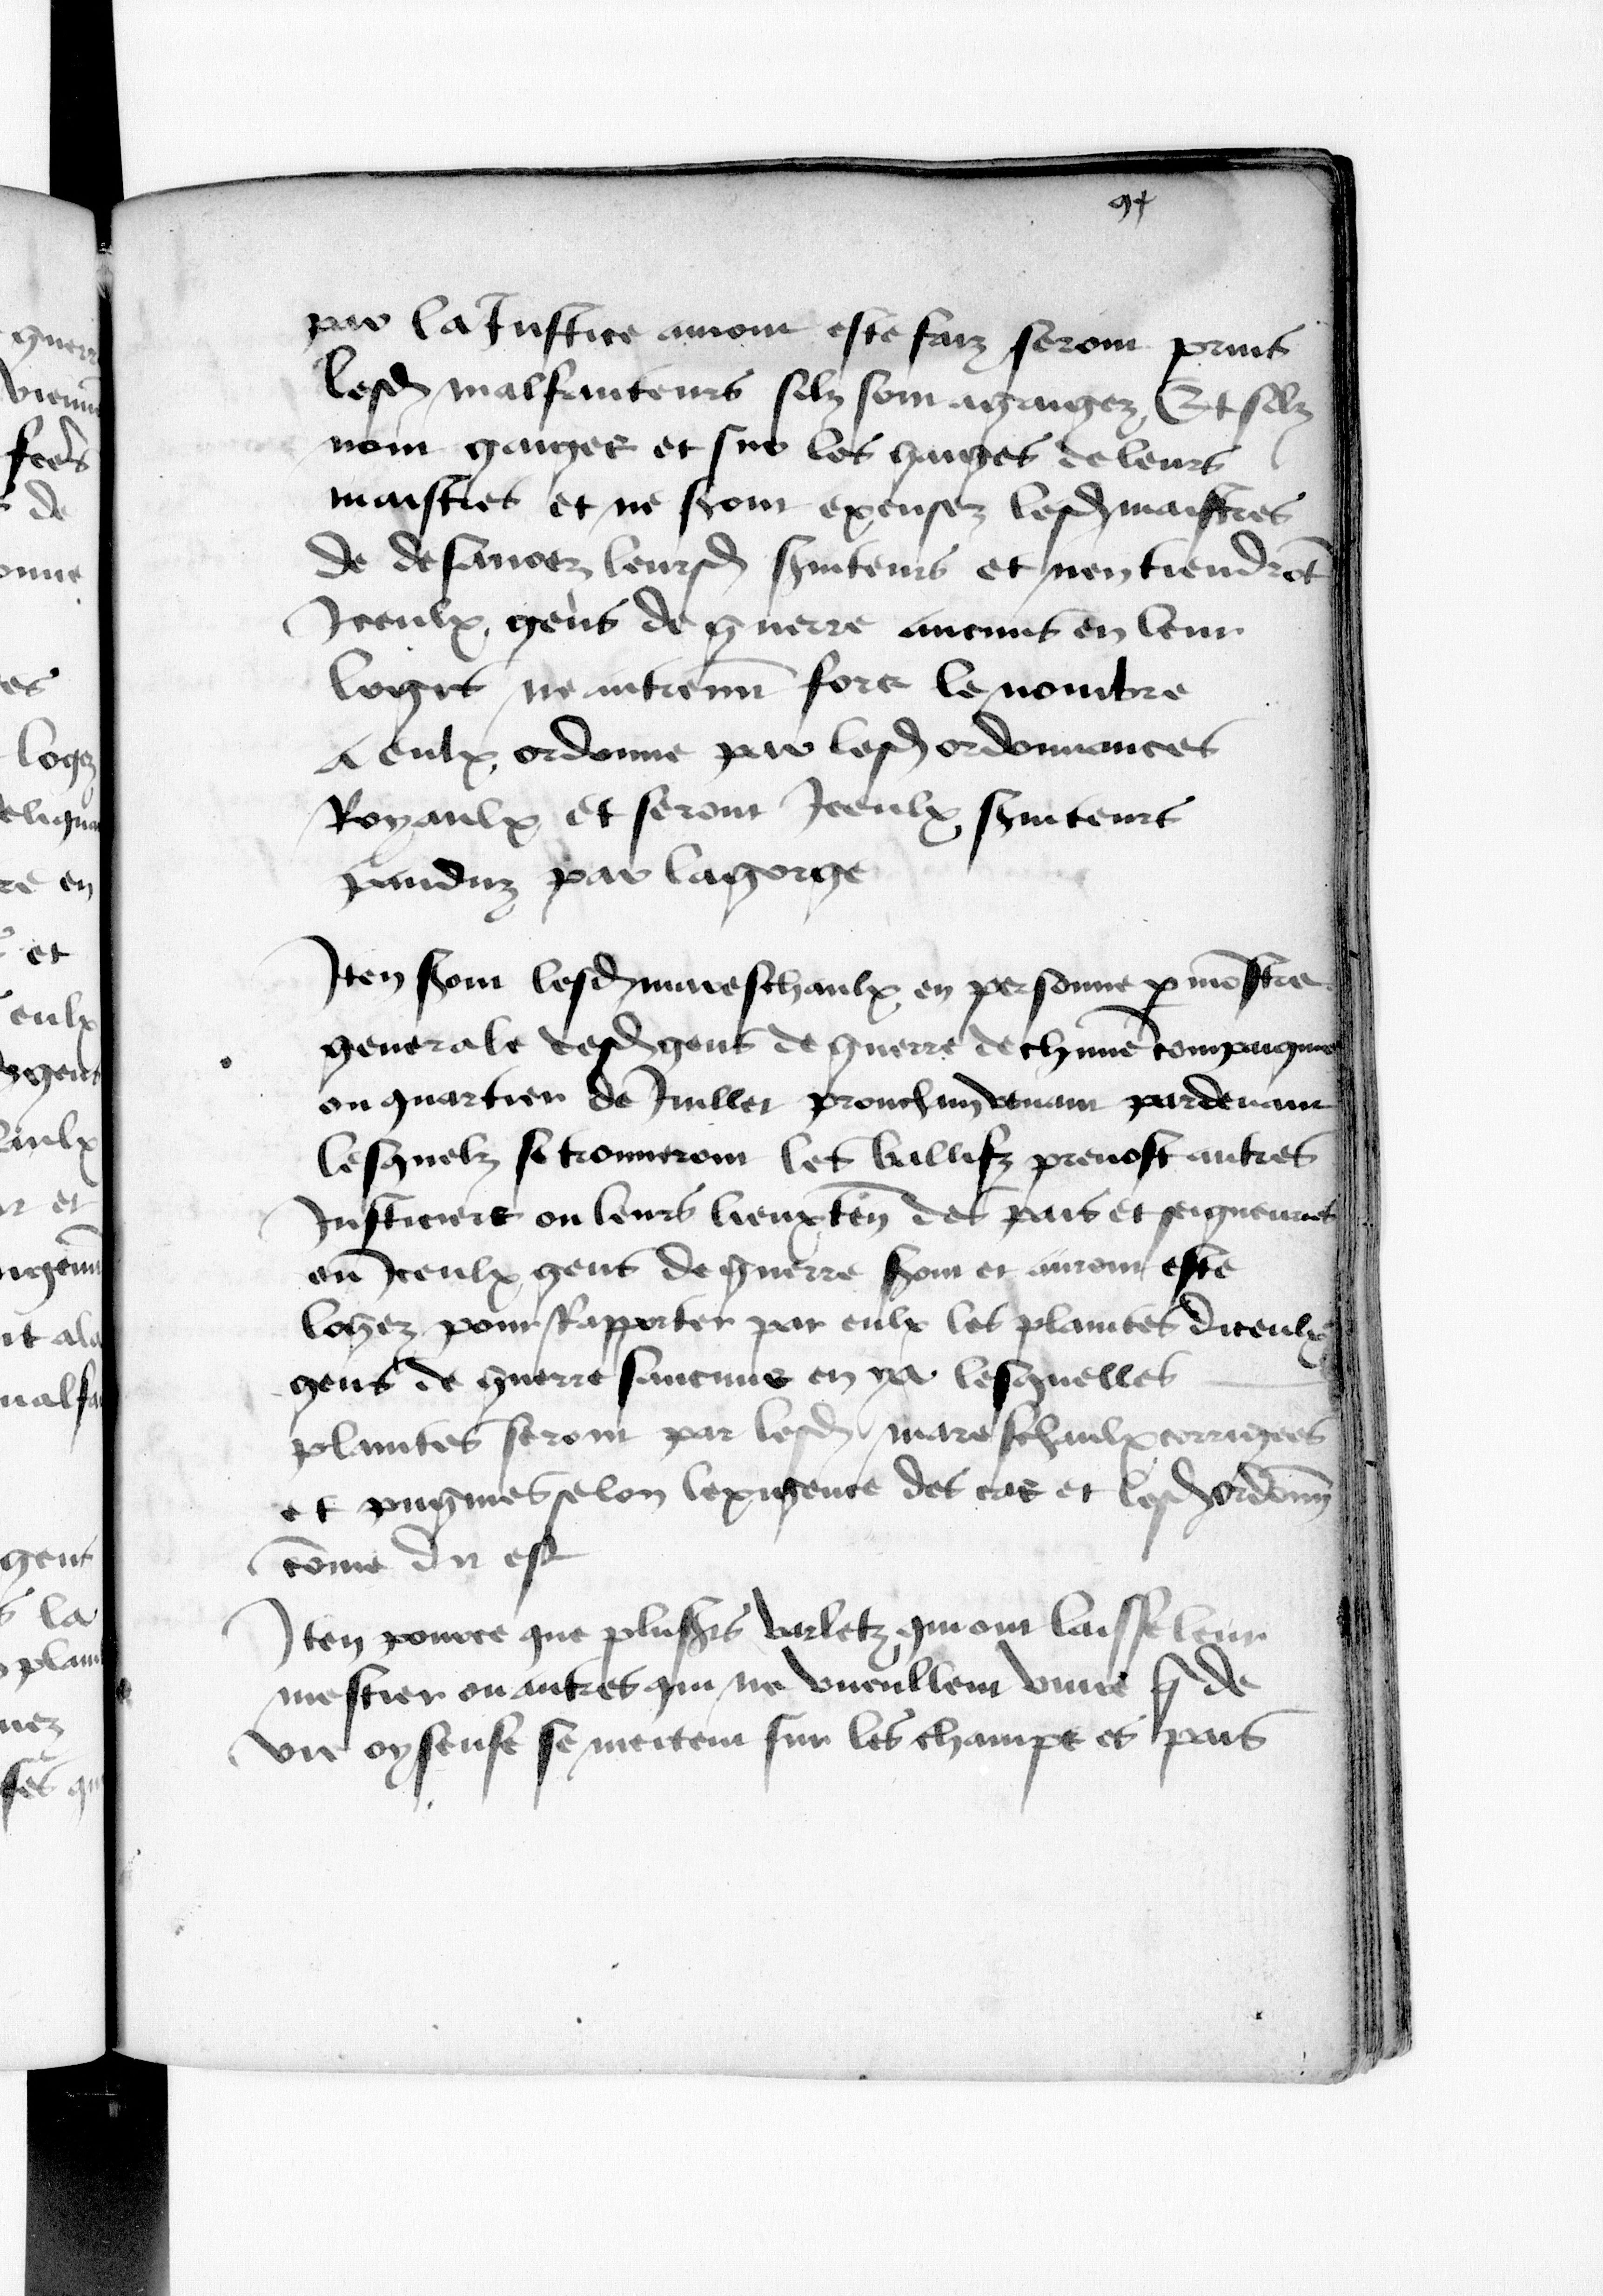 par la Justice auront este faiz seront prins
lesd malfaicteurs silz sont a gaigez Et silz
nont gaiges et sur les gaiges de leurs
maistres et ne sront excusez lesd maistres
de desauoer leursd sruiteurs et nen tiendrot
Iceulx gens de guerre aucuns en leur
logis ne autremt fors le nombre
a eulx ordonne par lesd ordonnances
Royaulx et seront Iceulx sruiteurs
panduz par la gorge
Iten sront lesd mareschaulx en personne monstre
generale desd gens de guerre de chune compaignie
ou quartier de Juillet prouchain venant par deuant
lesquelz se trouueront les baillifz preuost autres
Justiciers ou leurs lieuxten des pais et seigneuries
ou Iceulx gens de guerre sront et auront este
logez pour Rapporter par eulx les plaintes diceulx
gens de guerre saucuns en ya lesquelles
plaintes seront par lesd mareschaulx corrigees
et pugnies selon lexigence des cas et lesd ordonn
come dit est
Iten pource que plusrs varletz qui ont laisse leur
mestier ou autres qui ne vueullent viure q de
vie oyseuse se mettent sur les champs es pais